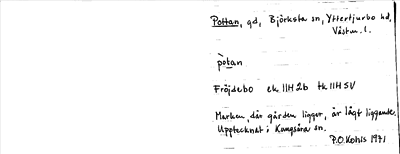 Pottan, gd, Björksta sn, Yttertjurbo hd,
Västm. l.
pòtan
Fröjdebo ek 11H 2b tk 11H SV
Marken, där gården ligger, är lågt liggande.
Upptecknat i Kungsåra sn.
P.O. Kohls 1971